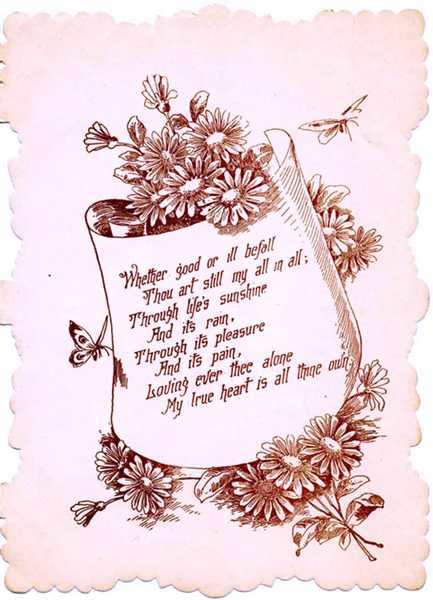 Whether good or ill befall
Thou art still my all in all;
Through life's sunshine
And its rain,
Through it's pleasure
And it's pain,
Loving ever thee alone
My true heart is all thine own.